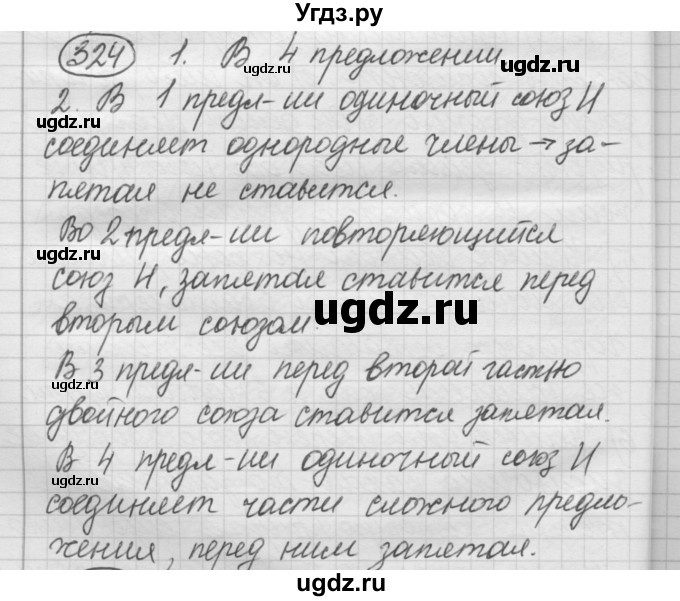 Угдз.ру
324 1. В 4 предложении
ugdz.ru ugdz.ru
2. В 1 предл-ии одиночный союз И
ugdz.ru
соединяет однородные члены → за-
пятая не ставится.
Во 2 предл-ии повторяющийся
союз И, запятая ставится перед
ugdz.ru
вторым союзом.
В 3 предл-ии перед второй частью
ugdz.ru
двойного союза ставится запятая.
В 4 предл-ии одиночный союз И
ugdz.ru
соединяет части сложного предло-
жения, перед ним запятая.
ugdz.ru
ugdz.ru